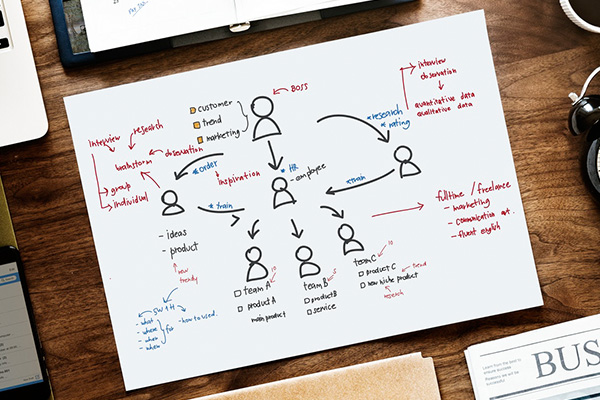 customer
trend
marketing
BOSS
interview
observation
quantitative data
qualitative data
* research
* rating
interview
research
brainstorm
observation
group
individual
* order
inspiration
* HR
- employee
* train
* train
- ideas
- product
new
trendy
5W + H
- what
- where
- when
- how to used.
fulltime / freelance
- marketing
- communication
- fluent english
team A
10
product A
main product
team B
5
product B
service
team C
10
product C
trend
new niche product
research
BUS